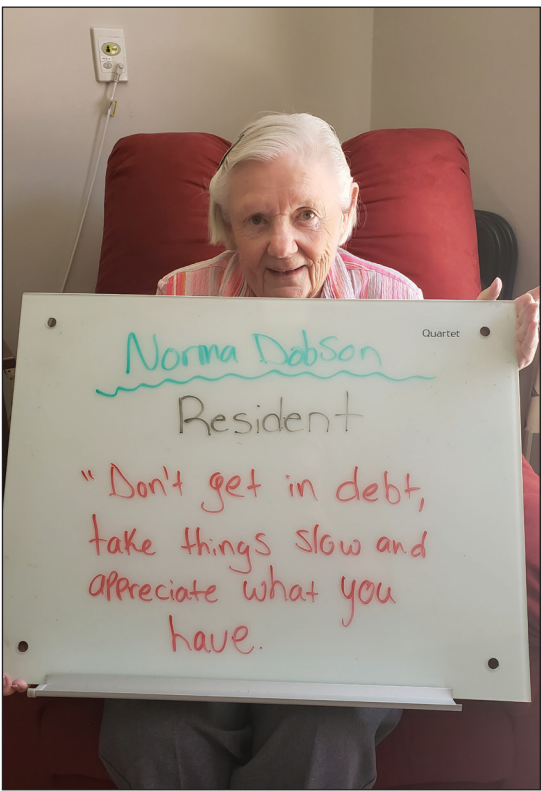 Quartet
Norma Dobson
Resident
"Don't get in debt,
take things slow and
appreciate what you
have.